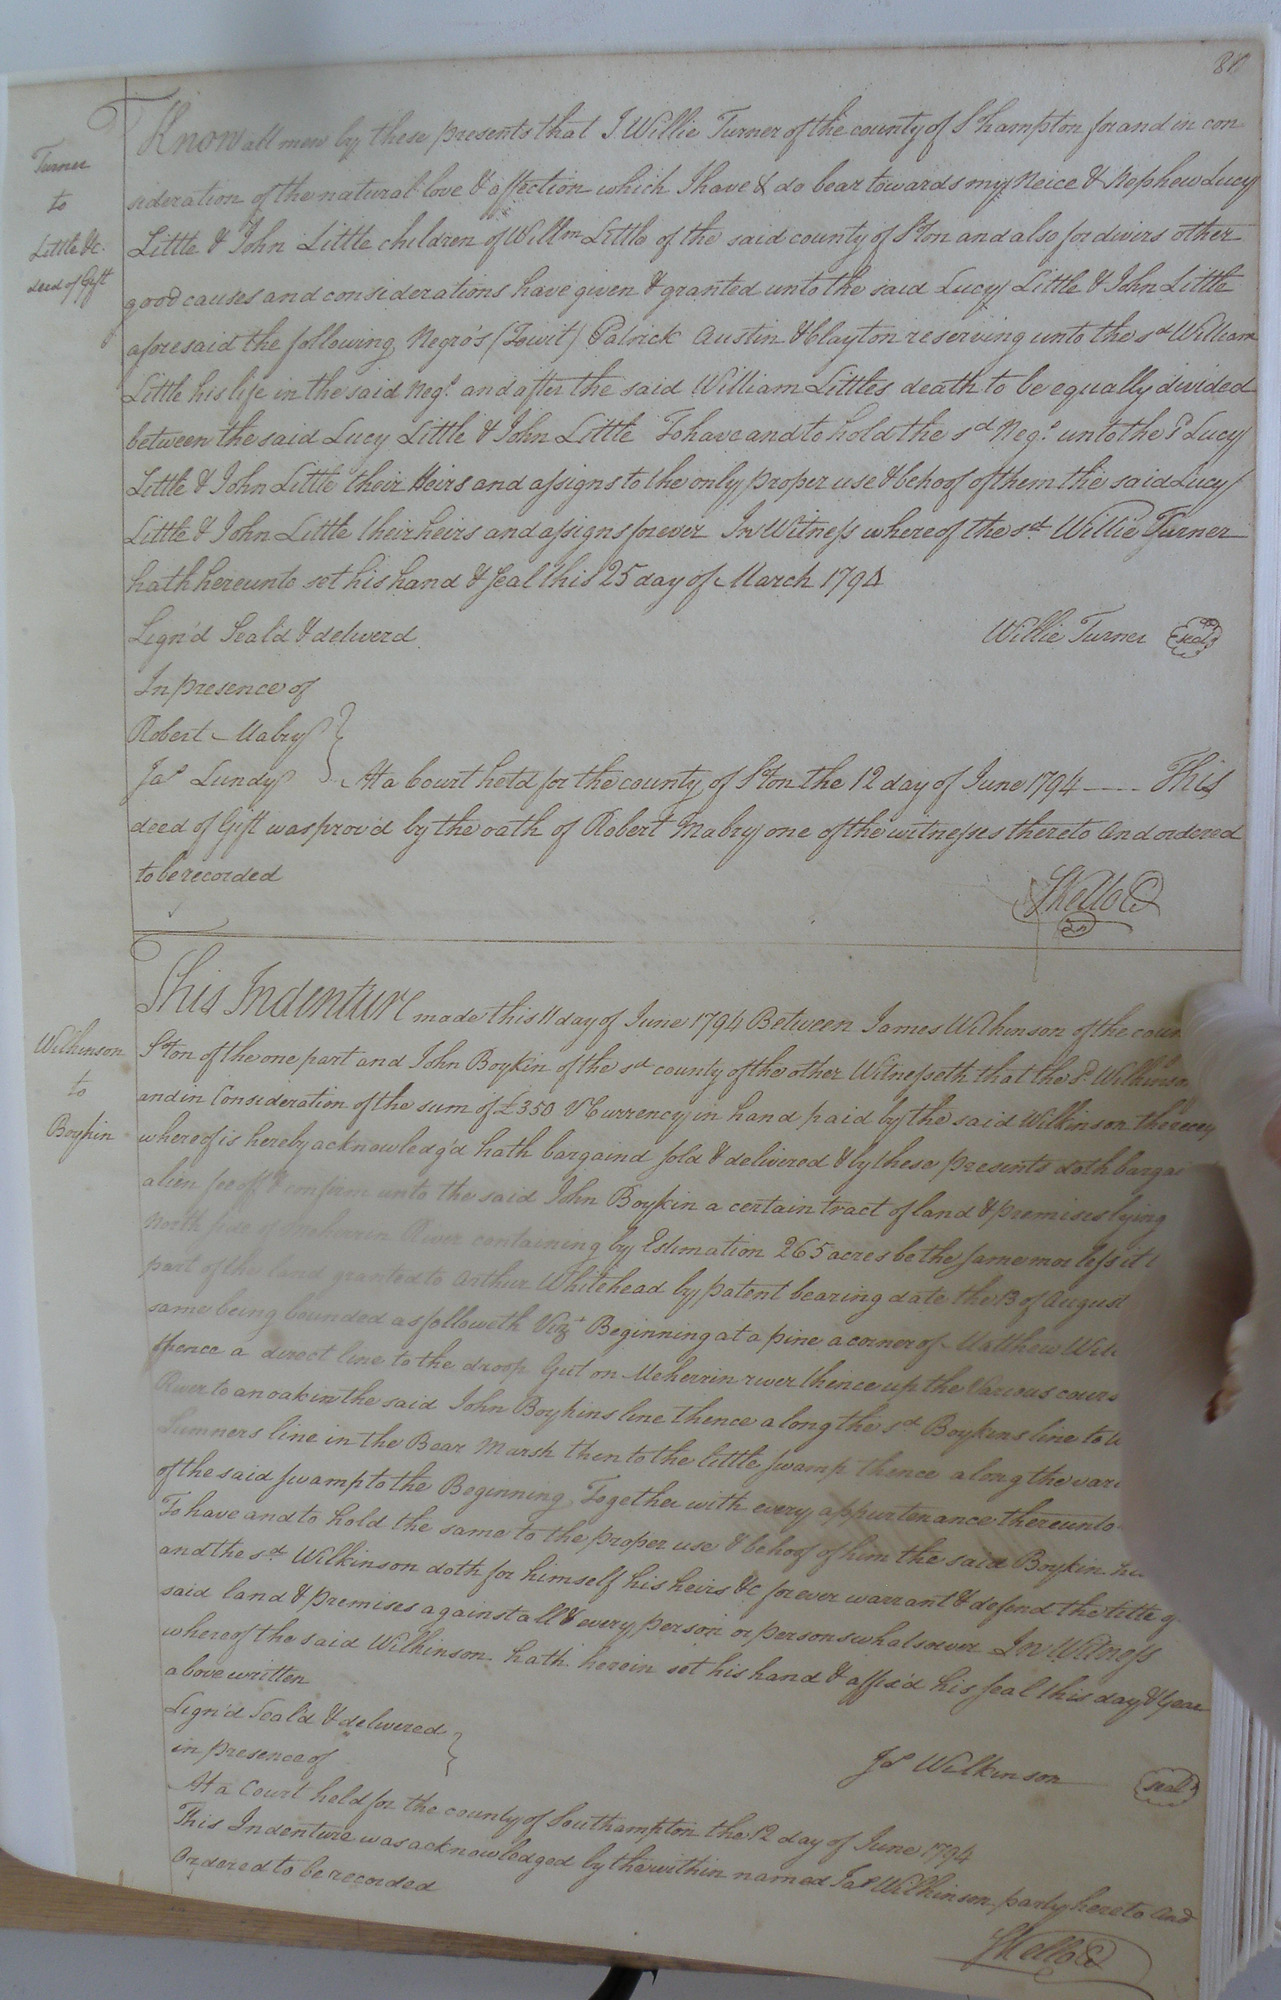 Know all men by these presents that I Willie Turner of the county of S hampton for and in con
sideration of the natural love & affection which I have & do bear towards my Neice & Nephew Lucy
Little & John Little children of Willm Little of the said county of Ston and also for divirs other
good causes and considerations have given & granted unto the said Lucy Little & John Little
aforesaid the following Negro's (Towit) Patrick Austin & Clayton reserving unto the sd William
Little his life in the said Negs. and after the said William Littles death to be equally divided
between the said Lucy Little & John Little To have and to hold the sd Negs. unto the sd Lucy
Little & John Little their Heirs and assigns to the only proper use & behoof of them the said Lucy
Little & John Little their heirs and assigns forever In Witness whereof the sd. Willie Turner
hath hereunto set his hand & Seal this 25 day of March 1794
Sign'd Seal'd & deliverd
Willie Turner Seal
In presence of
Robert Mabry
Jas Lundy
At a Court held for the county of Ston the 12 day of June 1794 This
deed of Gift was prov'd by the oath of Robert Mabry one of the witnesses thereto And ordered
to be recorded
Turner
to
Little &c.
deed of Gift
This Indenture made this 11 day of June 1794 Between James Wilkinson of the
Ston of the one part and John Boykin of the sd county of the other Witnesseth that the sd. Wilkinson
and in Consideration of the sum of £350 V Currency in hand paid by the said Wilkinson the
whereof is hereby acknowledg'd hath bargaind sold & delivered & by these presents doth
alien feoff & confirm unto the said John Boykin a certain tract of land & premises lying
North side of Meherrin River containing by Estimation 265 acres be the same mor less it
part of the land granted to Arthur Whitehead by patent bearing date the 13 of August
same being bounded as followeth Vizt Beginning at a pine a corner of Matthew
thence a direct line to the droop Gut on Meherrin river thence up the Various
River to an oak in the said John Boykins line thence along the sd Boykins line to
Sumners line in the Bear Marsh then to the little swamp thence along the
of the said swamp to the Beginning Together with every appurtenance thereunto
To have and to hold the same to the proper use & behoof of him the said Boykin
and the sd. Wilkinson doth for himself his heirs &c forever warrant & defend the title
said land & premises against all & every person or persons whatsoever In Witness
whereof the said Wilkinson hath herein set his hand & affix'd his seal this day & Year
above written
Sign'd Seal'd & delivered
in presence of
Jas Wilkinson Seal
At a Court held for the county of Southampton the 12 day of June 1794
This Indenture was acknowledged by the within named Jas Wilkinson party hereto And
Ordered to be recorded
Wilkinson
to
Boykin